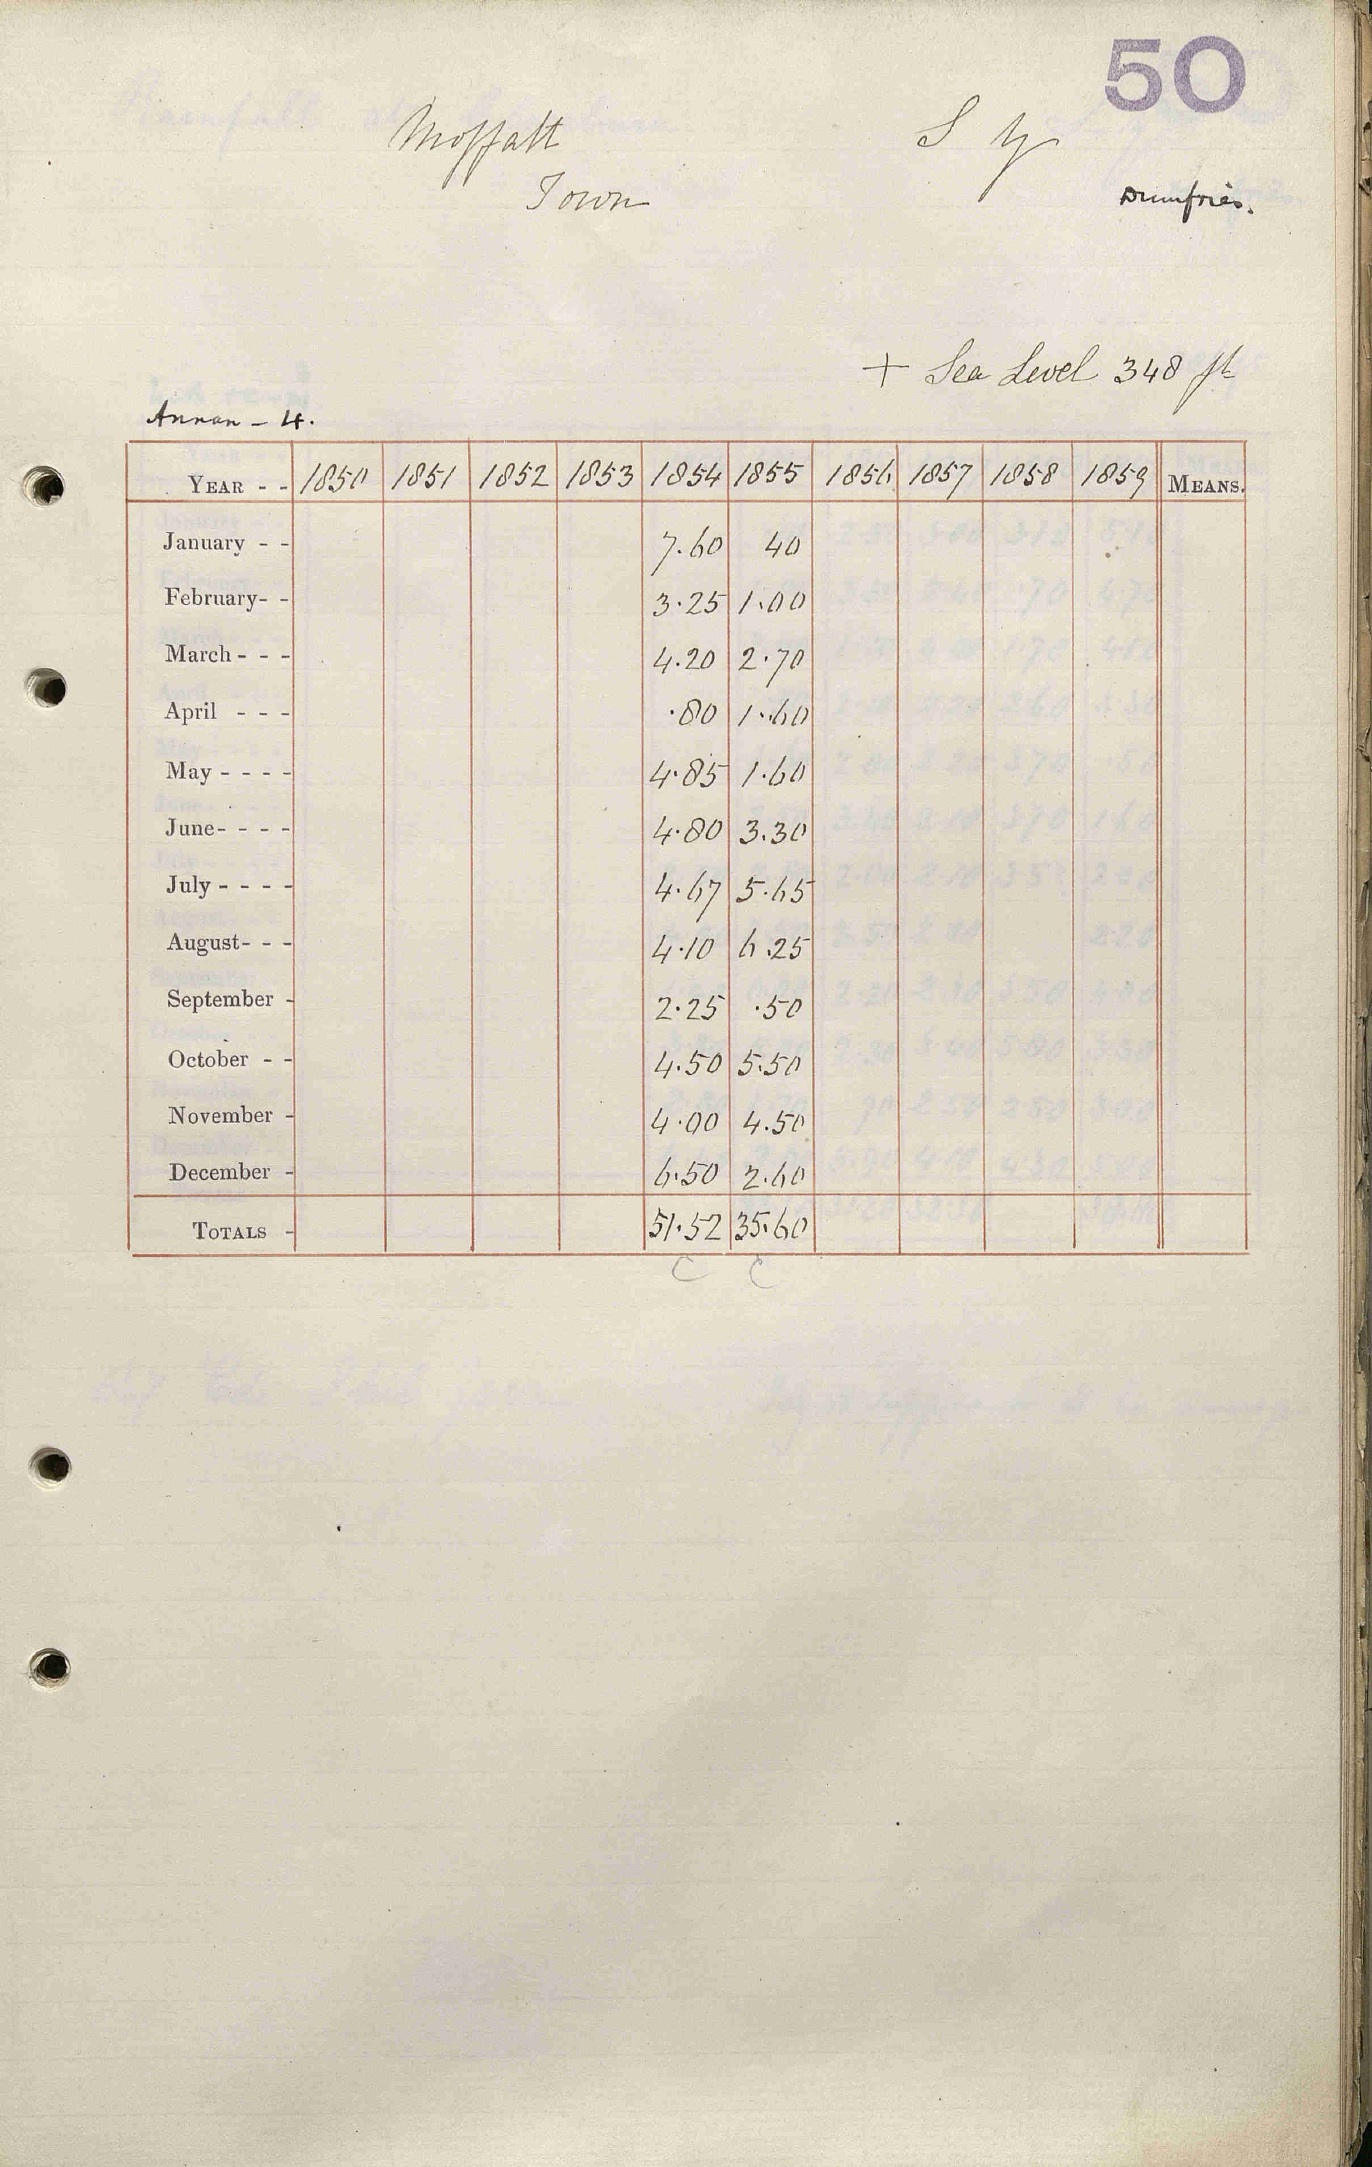 50
Moffatt
Town
S Y
Dumfries.
+ Sea Level 348 ft
Annan - 4.
YEAR - - 1850 1851 1852 1853 1854 1855 1856 1857 1858 1859 MEANS.
January - - 7.60 40
February- - 3.25 1.00
March - - - 4.20 2.70
April - - - .80 1.60
May - - - - 4.85 1.60
June- - - - 4.80 3.30
July - - - - 4.67 5.65
August- - - 4.10 6.25
September - 2.25 .50
October - - 4.50 5.50
November - 4.00 4.50
December - 6.50 2.60
TOTALS - 51.52 35.60
C C